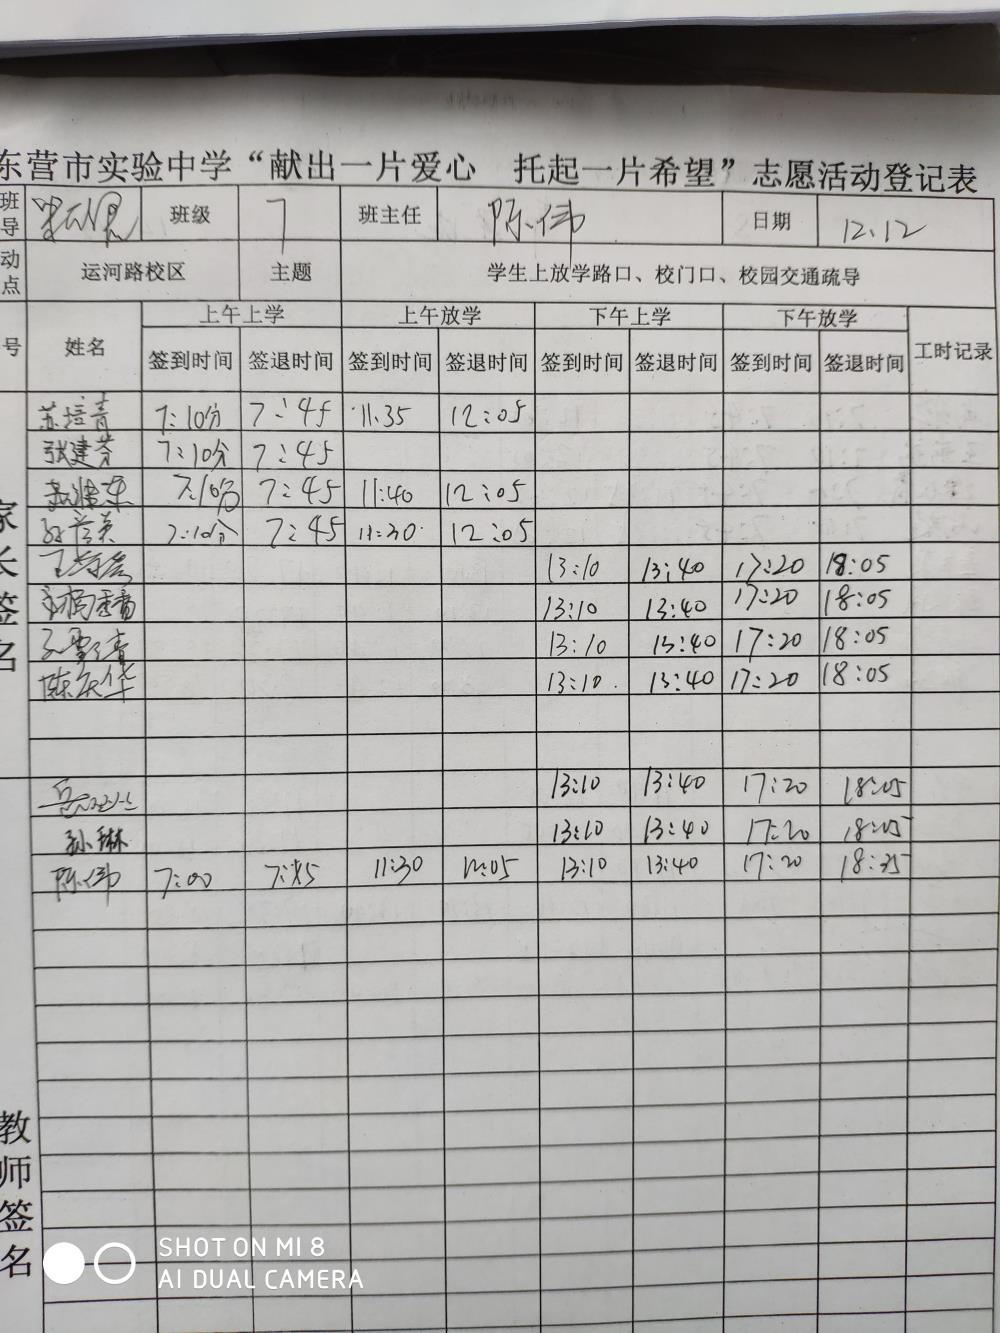 东营市实验中学“献出一片爱心 托起一片希望”志愿活动登记表
班导 班级 7 班主任 陈伟 日期 12.12
动点 运河路校区 主题 学生上放学路口、校门口、校园交通疏导
号 姓名 上午上学 上午放学 下午上学 下午放学 工时记录
签到时间 签退时间 签到时间 签退时间 签到时间 签退时间 签到时间 签退时间
家长签名
苏培青 7:10分 7:45 11:35 12:05
张建芬 7:10分 7:45
7:10分 7:45 11:40 12:05
7:10分 7:45 11:30 12:05
13:10 13:40 17:20 18:05
13:10 13:40 17:20 18:05
13:10 13:40 17:20 18:05
陈庆华 13:10 13:40 17:20 18:05
13:10 13:40 17:20 18:05
孙琳 13:10 13:40 17:20 18:05
陈伟 7:00 7:45 11:30 12:05 13:10 13:40 17:20 18:35
教师签名
SHOT ON MI 8
AI DUAL CAMERA